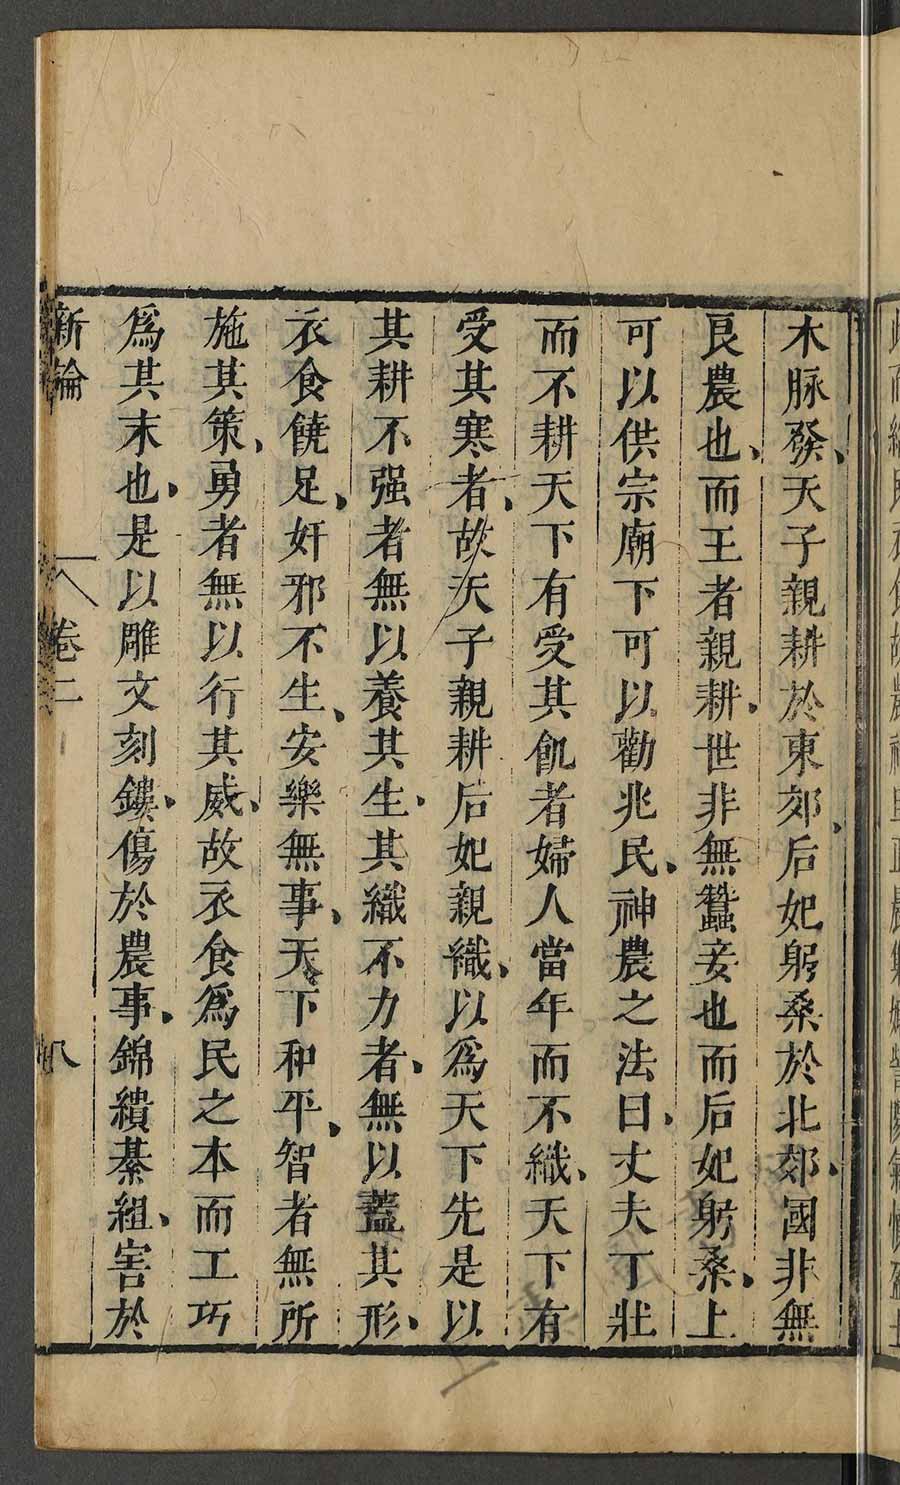 木脉發、天子親耕於東郊、后妃躬桑於北郊、國非無
良農也、而王者親耕、世非無蠶妾也而后妃躬桑、上
可以供宗廟下可以勸兆民、神農之法曰、丈夫丁壯
而不耕天下有受其飢者婦人當年而不織、天下有
受其寒者、故天子親耕后妃親織、以爲天下先是以
其耕不强者無以養其生、其織不力者、無以蓋其形、
衣食饒足、奸邪不生、安樂無事、天下和平、智者無所
施其策、勇者無以行其威、故衣食爲民之本而工巧
爲其末也、是以雕文刻鏤、傷於農事、錦繢綦組、害於
新論 卷二 八